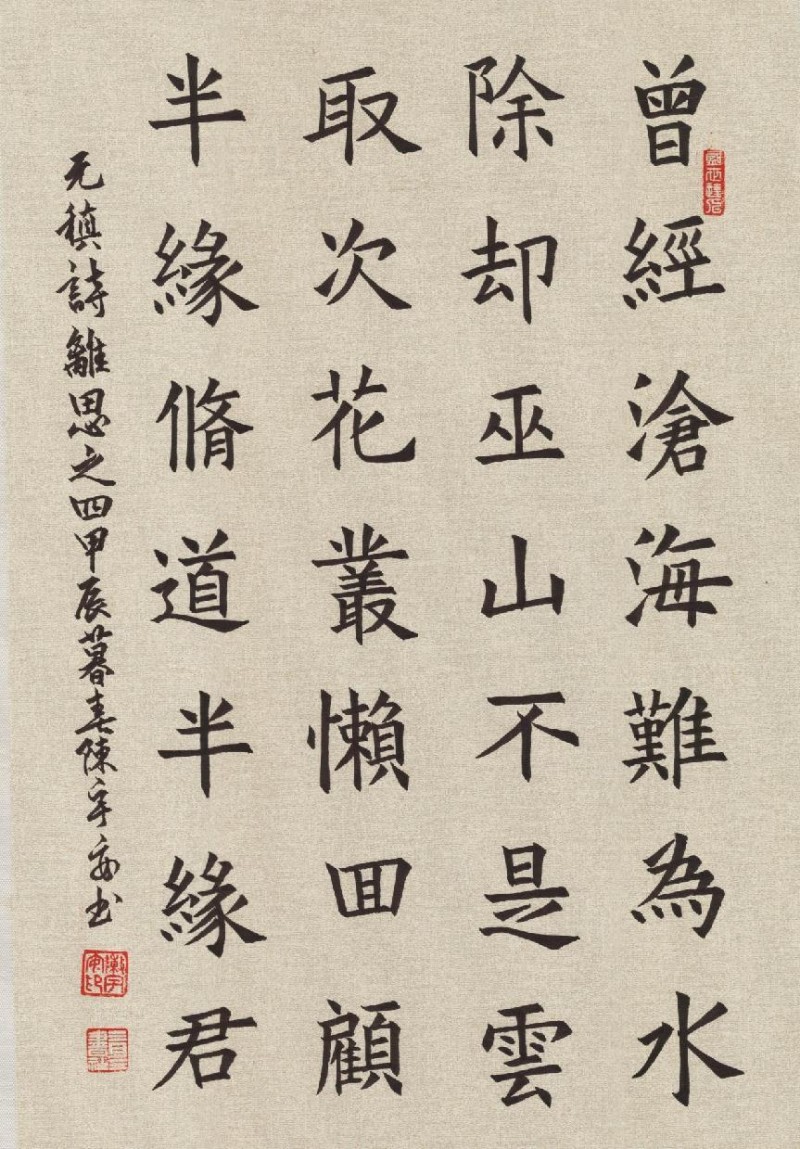 曾經滄海難為水
除却巫山不是雲
取次花叢懶回顧
半緣脩道半緣君
元稹詩離思之四甲辰暮春陳宇安书